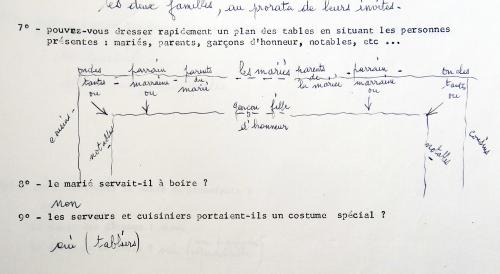 les deux familles, au prorata de leurs invités.
7° - pouvez-vous dresser rapidement un plan des tables en situant les personnes
présentes : mariés, parents, garçons d'honneur, notables, etc ...
ondes parrain parents - les mariés parents - parrain - ondes
tantes - marraine - du de marraine tantes
ou ou marié la mariée ou ou
garçon fille
d'honneur
cousins notables notables cousins
8° - le marié servait-il à boire ?
non
9° - les serveurs et cuisiniers portaient-ils un costume spécial ?
oui (tabliers)